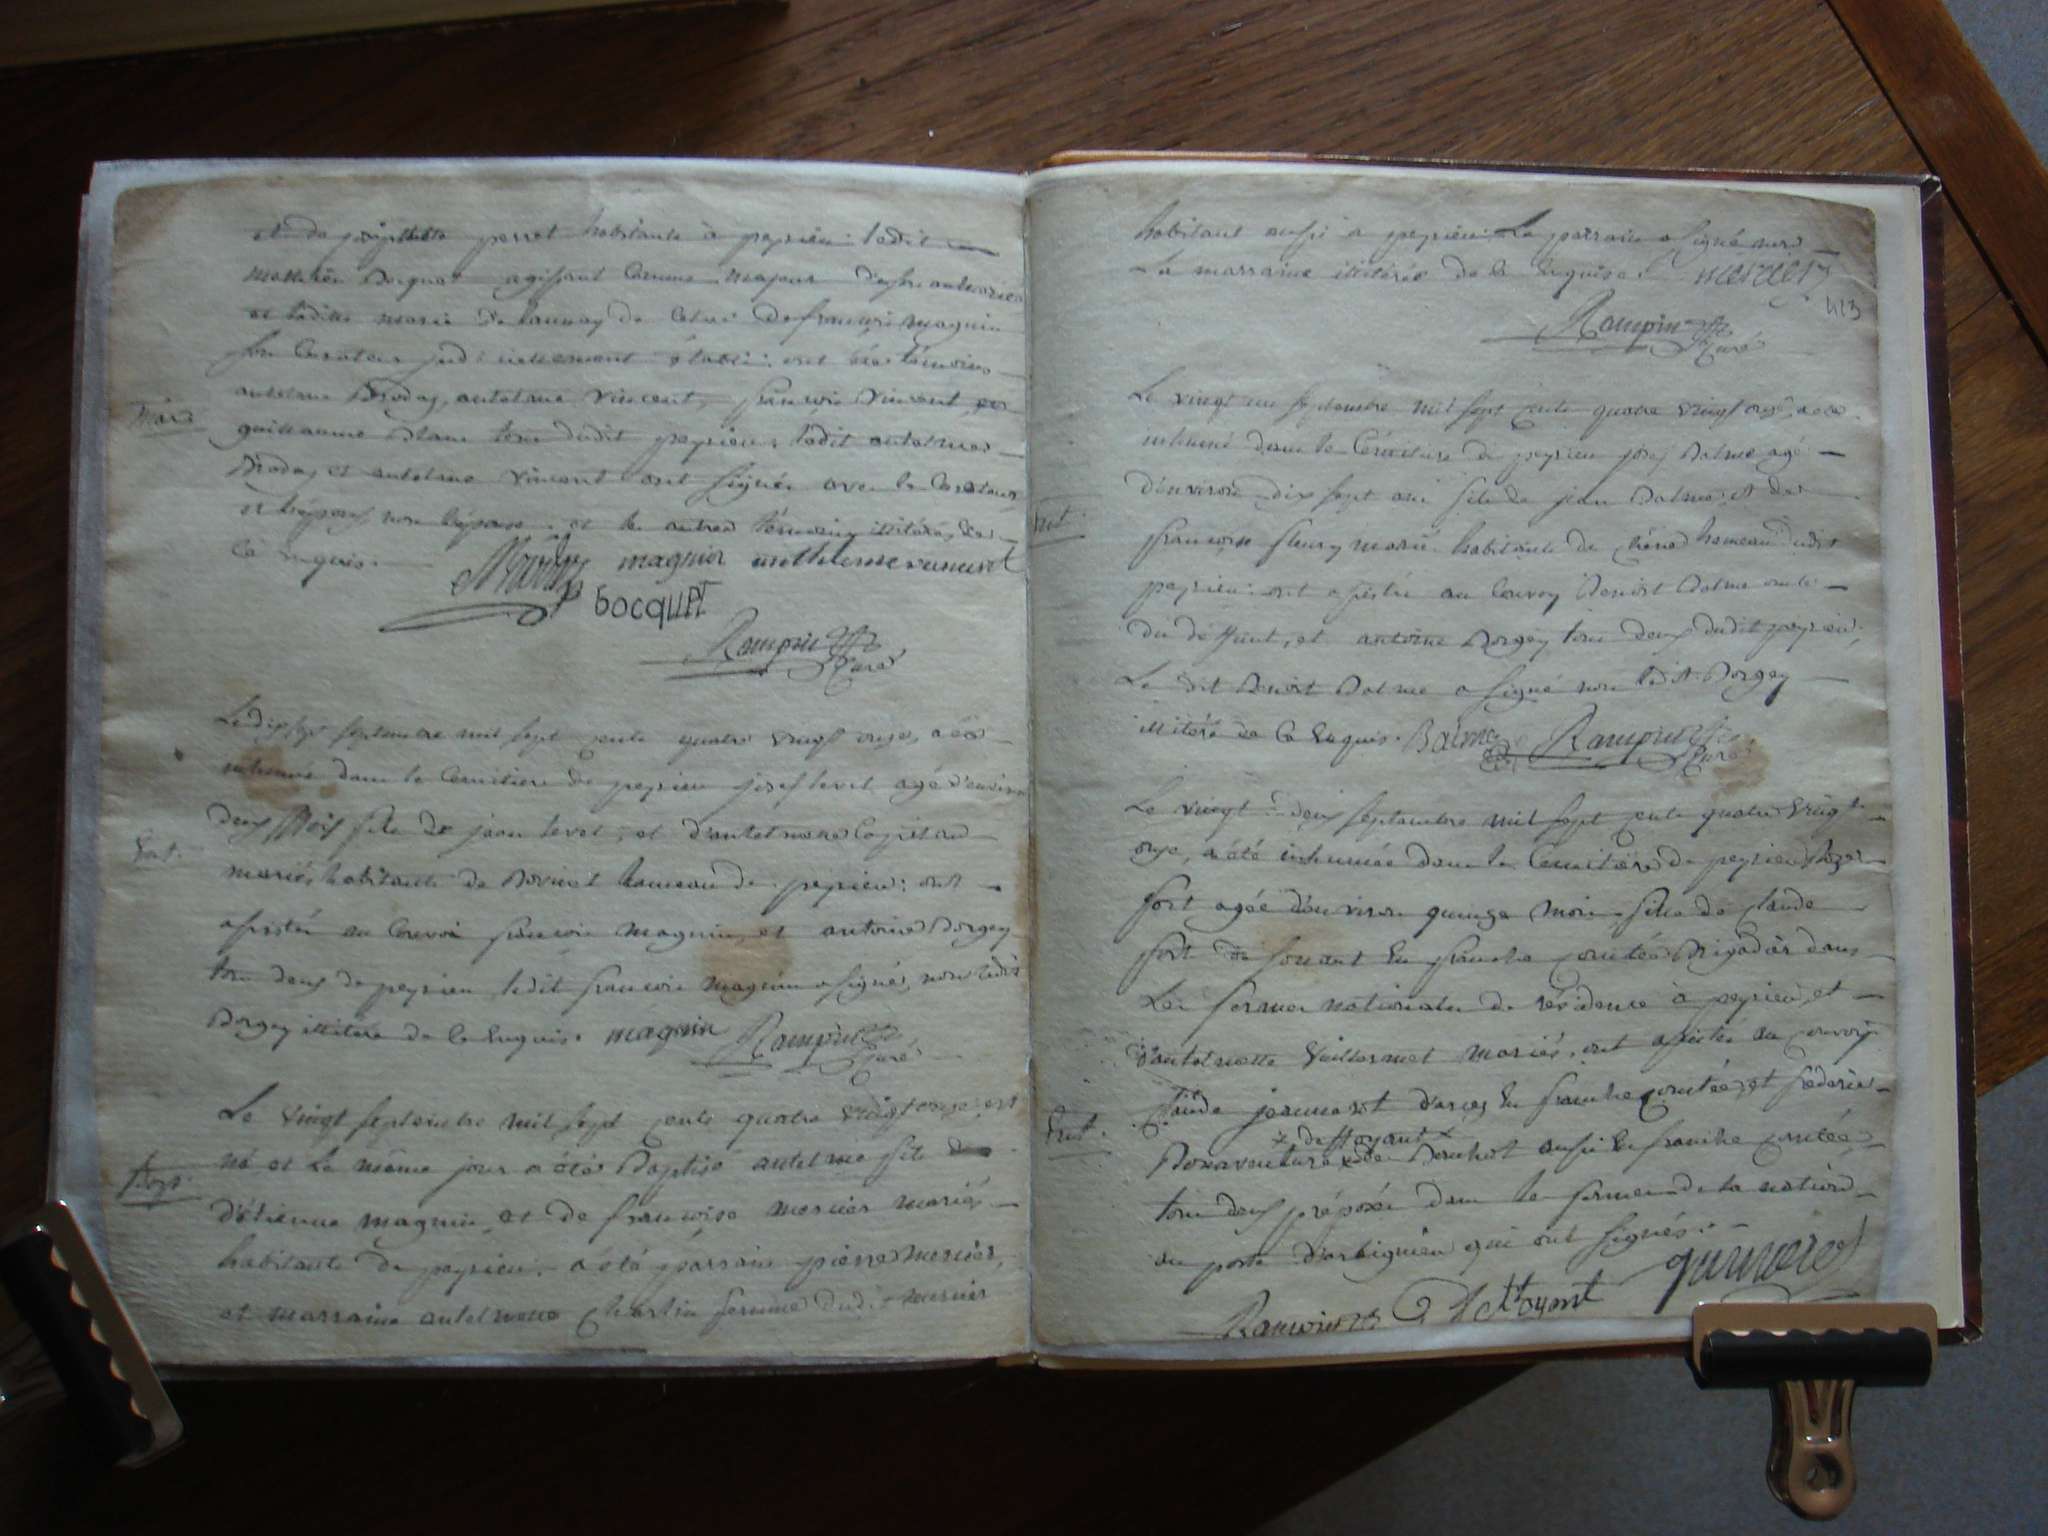 et de perret habitants à peyrieu: ledit
mathieu Bocquet agissant comme majeur
et ladite marie de launay de celui de françois magnin
son curateur judiciellement établi: ont été témoins
antelme Broday, antelme vincent, françois vincent et
Mari.
guillaume blanc tous dudit peyrieu, ledit antelme
Broday et antelme vincent ont signés avec le curateur
et l'époux non l'épouse. et les autres témoins illitérés, de
ce enquis.
magnin anthelme vincent
BOCQUET
Rampin
Curé
Le dix sept septembre mil sept cents quatre vingt onze, a été
inhumé dans le Cemitiere de peyrieu josef levet agé d'environ
deux mois fils de jean levet, et d'antelmette
Ent.
mariés, habitants de Bovinel hameau de peyrieu: ont
assistés au Convoi francois magnin, et antoine Borgey
tous deux de peyrieu, ledit francois magnin a signé, non ledit
Borgey illitéré de ce Enquis. magnin Rampin
Curé
Le vingt septembre mil sept cents quatre vingt onze est
né et le même jour a été Baptisé antelme fils
Bap.
d'étienne magnin, et de françoise mercier mariés
habitants de peyrieu. a été parrain pierre mercier,
et marraine antelmette Charlin femme dudit mercier
habitant aussi a peyrieu. Le parrain a signé non
La marraine illitérée de ce Enquise. mercier
413
Rampin
Curé
Le vingt un septembre mil sept cents quatre vingt onze, a été
inhumé dans le Cémitiere de peyrieu josef Balme agé
d'environ dix sept ans fils de jean Balme et de
Ent.
françoise fleury mariés habitants de hameau dudit
peyrieu: ont assistés au Convoy Benoit Balme oncle
du deffunt, et antoine Borgey tous deux dudit peyrieu,
Le dit Benoit Balme a signé non ledit Borgey
illitéré de ce Enquis. Balme Rampin
Curé
Le vingt deux septembre mil sept cents quatre vingt
onze, a été inhumée dans le Cémitière de peyrieu
fort agée d'environ quinze mois fille de claude
fort de en franche comtée Brigadier dans
Les fermes nationales de résidence à peyrieu, et
d'antelmette Vuillermet mariés, ont assistés au convoy
Claude jeanneret en franche comtée, et féderic
Ent.
x deffoyant x
Bonaventure de aussi en franche comtée,
tous deux préposés dans les fermes de la nation
au poste d'arbignieu qui ont signés.
Rampin